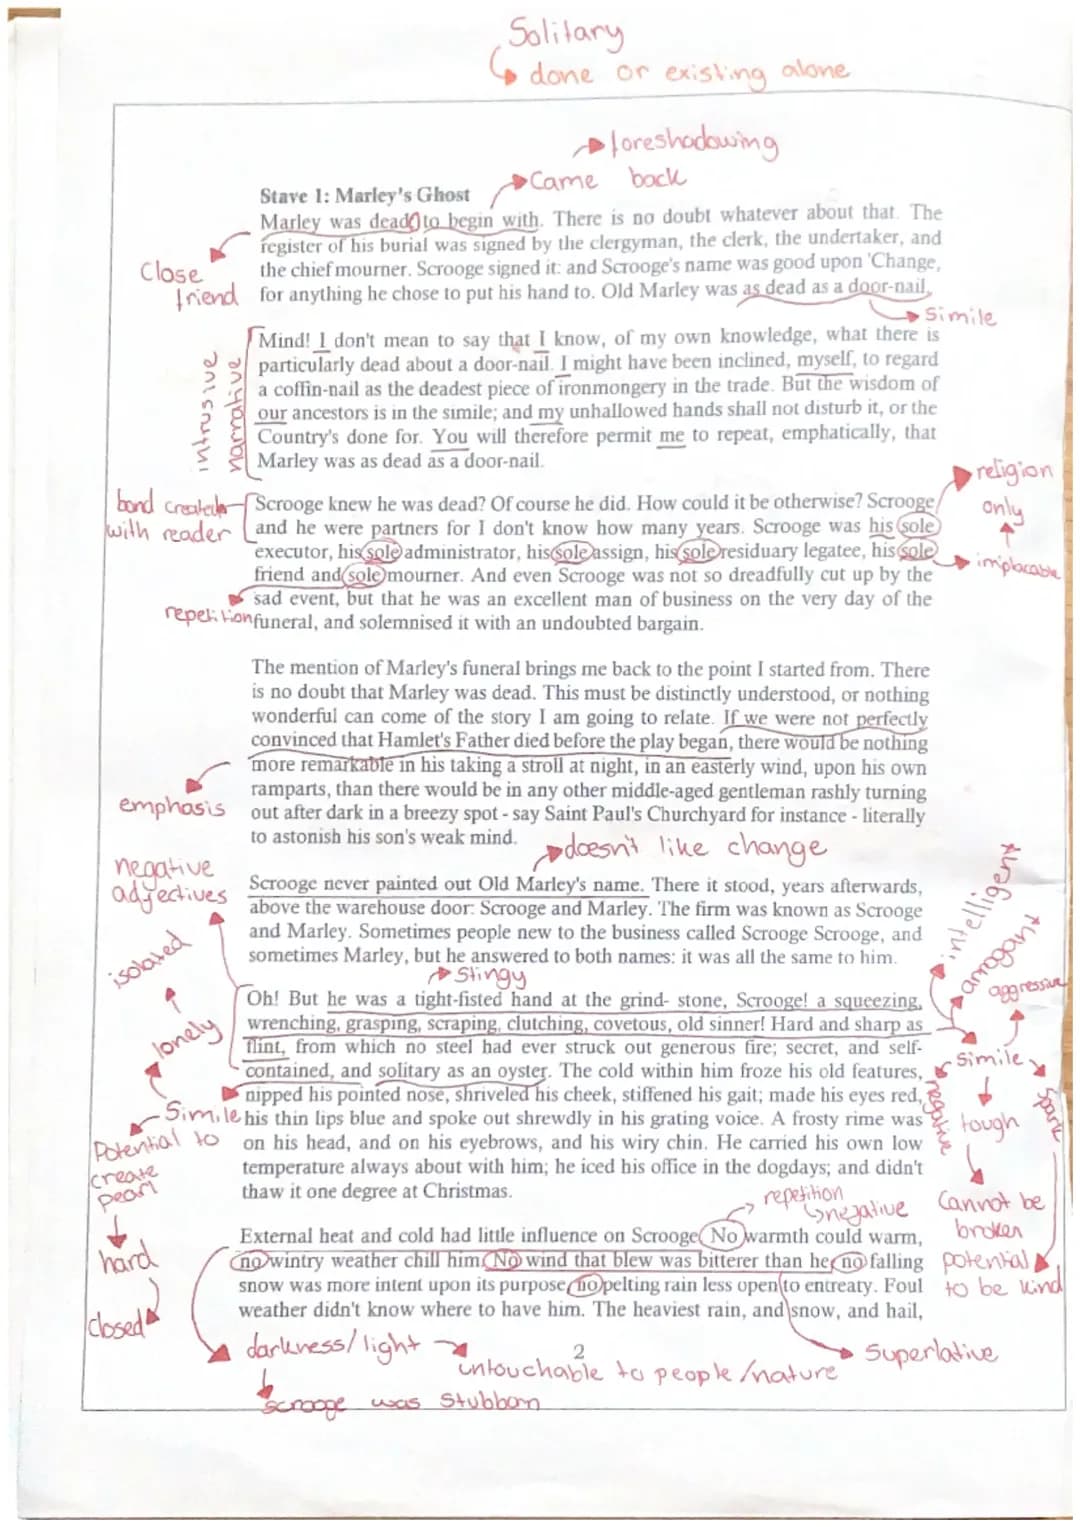 Solitary
done or existing alone
foreshadowing
Came back
Stave 1: Marley's Ghost
Marley was dead to begin with. There is no doubt whatever about that. The
register of his burial was signed by the clergyman, the clerk, the undertaker, and
the chief mourner. Scrooge signed it: and Scrooge's name was good upon 'Change,
for anything he chose to put his hand to. Old Marley was as dead as a door-nail.
Close
friend
Simile
Mind! I don't mean to say that I know, of my own knowledge, what there is
particularly dead about a door-nail. I might have been inclined, myself, to regard
a coffin-nail as the deadest piece of ironmongery in the trade. But the wisdom of
our ancestors is in the simile; and my unhallowed hands shall not disturb it, or the
Country's done for. You will therefore permit me to repeat, emphatically, that
Marley was as dead as a door-nail.
intrusive
narrative
religion
only
implacable
bond created
with reader
Scrooge knew he was dead? Of course he did. How could it be otherwise? Scrooge
and he were partners for I don't know how many years. Scrooge was his sole
executor, his sole administrator, his sole assign, his sole residuary legatee, his sole
friend and sole mourner. And even Scrooge was not so dreadfully cut up by the
sad event, but that he was an excellent man of business on the very day of the
funeral, and solemnised it with an undoubted bargain.
repetition
The mention of Marley's funeral brings me back to the point I started from. There
is no doubt that Marley was dead. This must be distinctly understood, or nothing
wonderful can come of the story I am going to relate. If we were not perfectly
convinced that Hamlet's Father died before the play began, there would be nothing
more remarkable in his taking a stroll at night, in an easterly wind, upon his own
ramparts, than there would be in any other middle-aged gentleman rashly turning
out after dark in a breezy spot - say Saint Paul's Churchyard for instance - literally
to astonish his son's weak mind.
emphasis
doesn't like change
negative
adjectives
Scrooge never painted out Old Marley's name. There it stood, years afterwards,
above the warehouse door: Scrooge and Marley. The firm was known as Scrooge
and Marley. Sometimes people new to the business called Scrooge Scrooge, and
sometimes Marley, but he answered to both names: it was all the same to him.
Stingy
isolated
lonely
intelligent
arrogant
aggressive
Oh! But he was a tight-fisted hand at the grind- stone, Scrooge! a squeezing,
wrenching, grasping, scraping, clutching, covetous, old sinner! Hard and sharp as
flint, from which no steel had ever struck out generous fire; secret, and self-
contained, and solitary as an oyster. The cold within him froze his old features,
nipped his pointed nose, shriveled his cheek, stiffened his gait; made his eyes red,
his thin lips blue and spoke out shrewdly in his grating voice. A frosty rime was
on his head, and on his eyebrows, and his wiry chin. He carried his own low
temperature always about with him; he iced his office in the dogdays; and didn't
thaw it one degree at Christmas.
Simile
Potential to
create
pearl
hard
closed
Simile
negative
tough
Spark
Cannot be
broken
potential
to be kind
repetition
negative
External heat and cold had little influence on Scrooge No warmth could warm,
no wintry weather chill him. No wind that blew was bitterer than he, no falling
snow was more intent upon its purpose, no pelting rain less open to entreaty. Foul
weather didn't know where to have him. The heaviest rain, and snow, and hail,
2
darkness/light
untouchable to people/nature
Scrooge was stubborn
Superlative